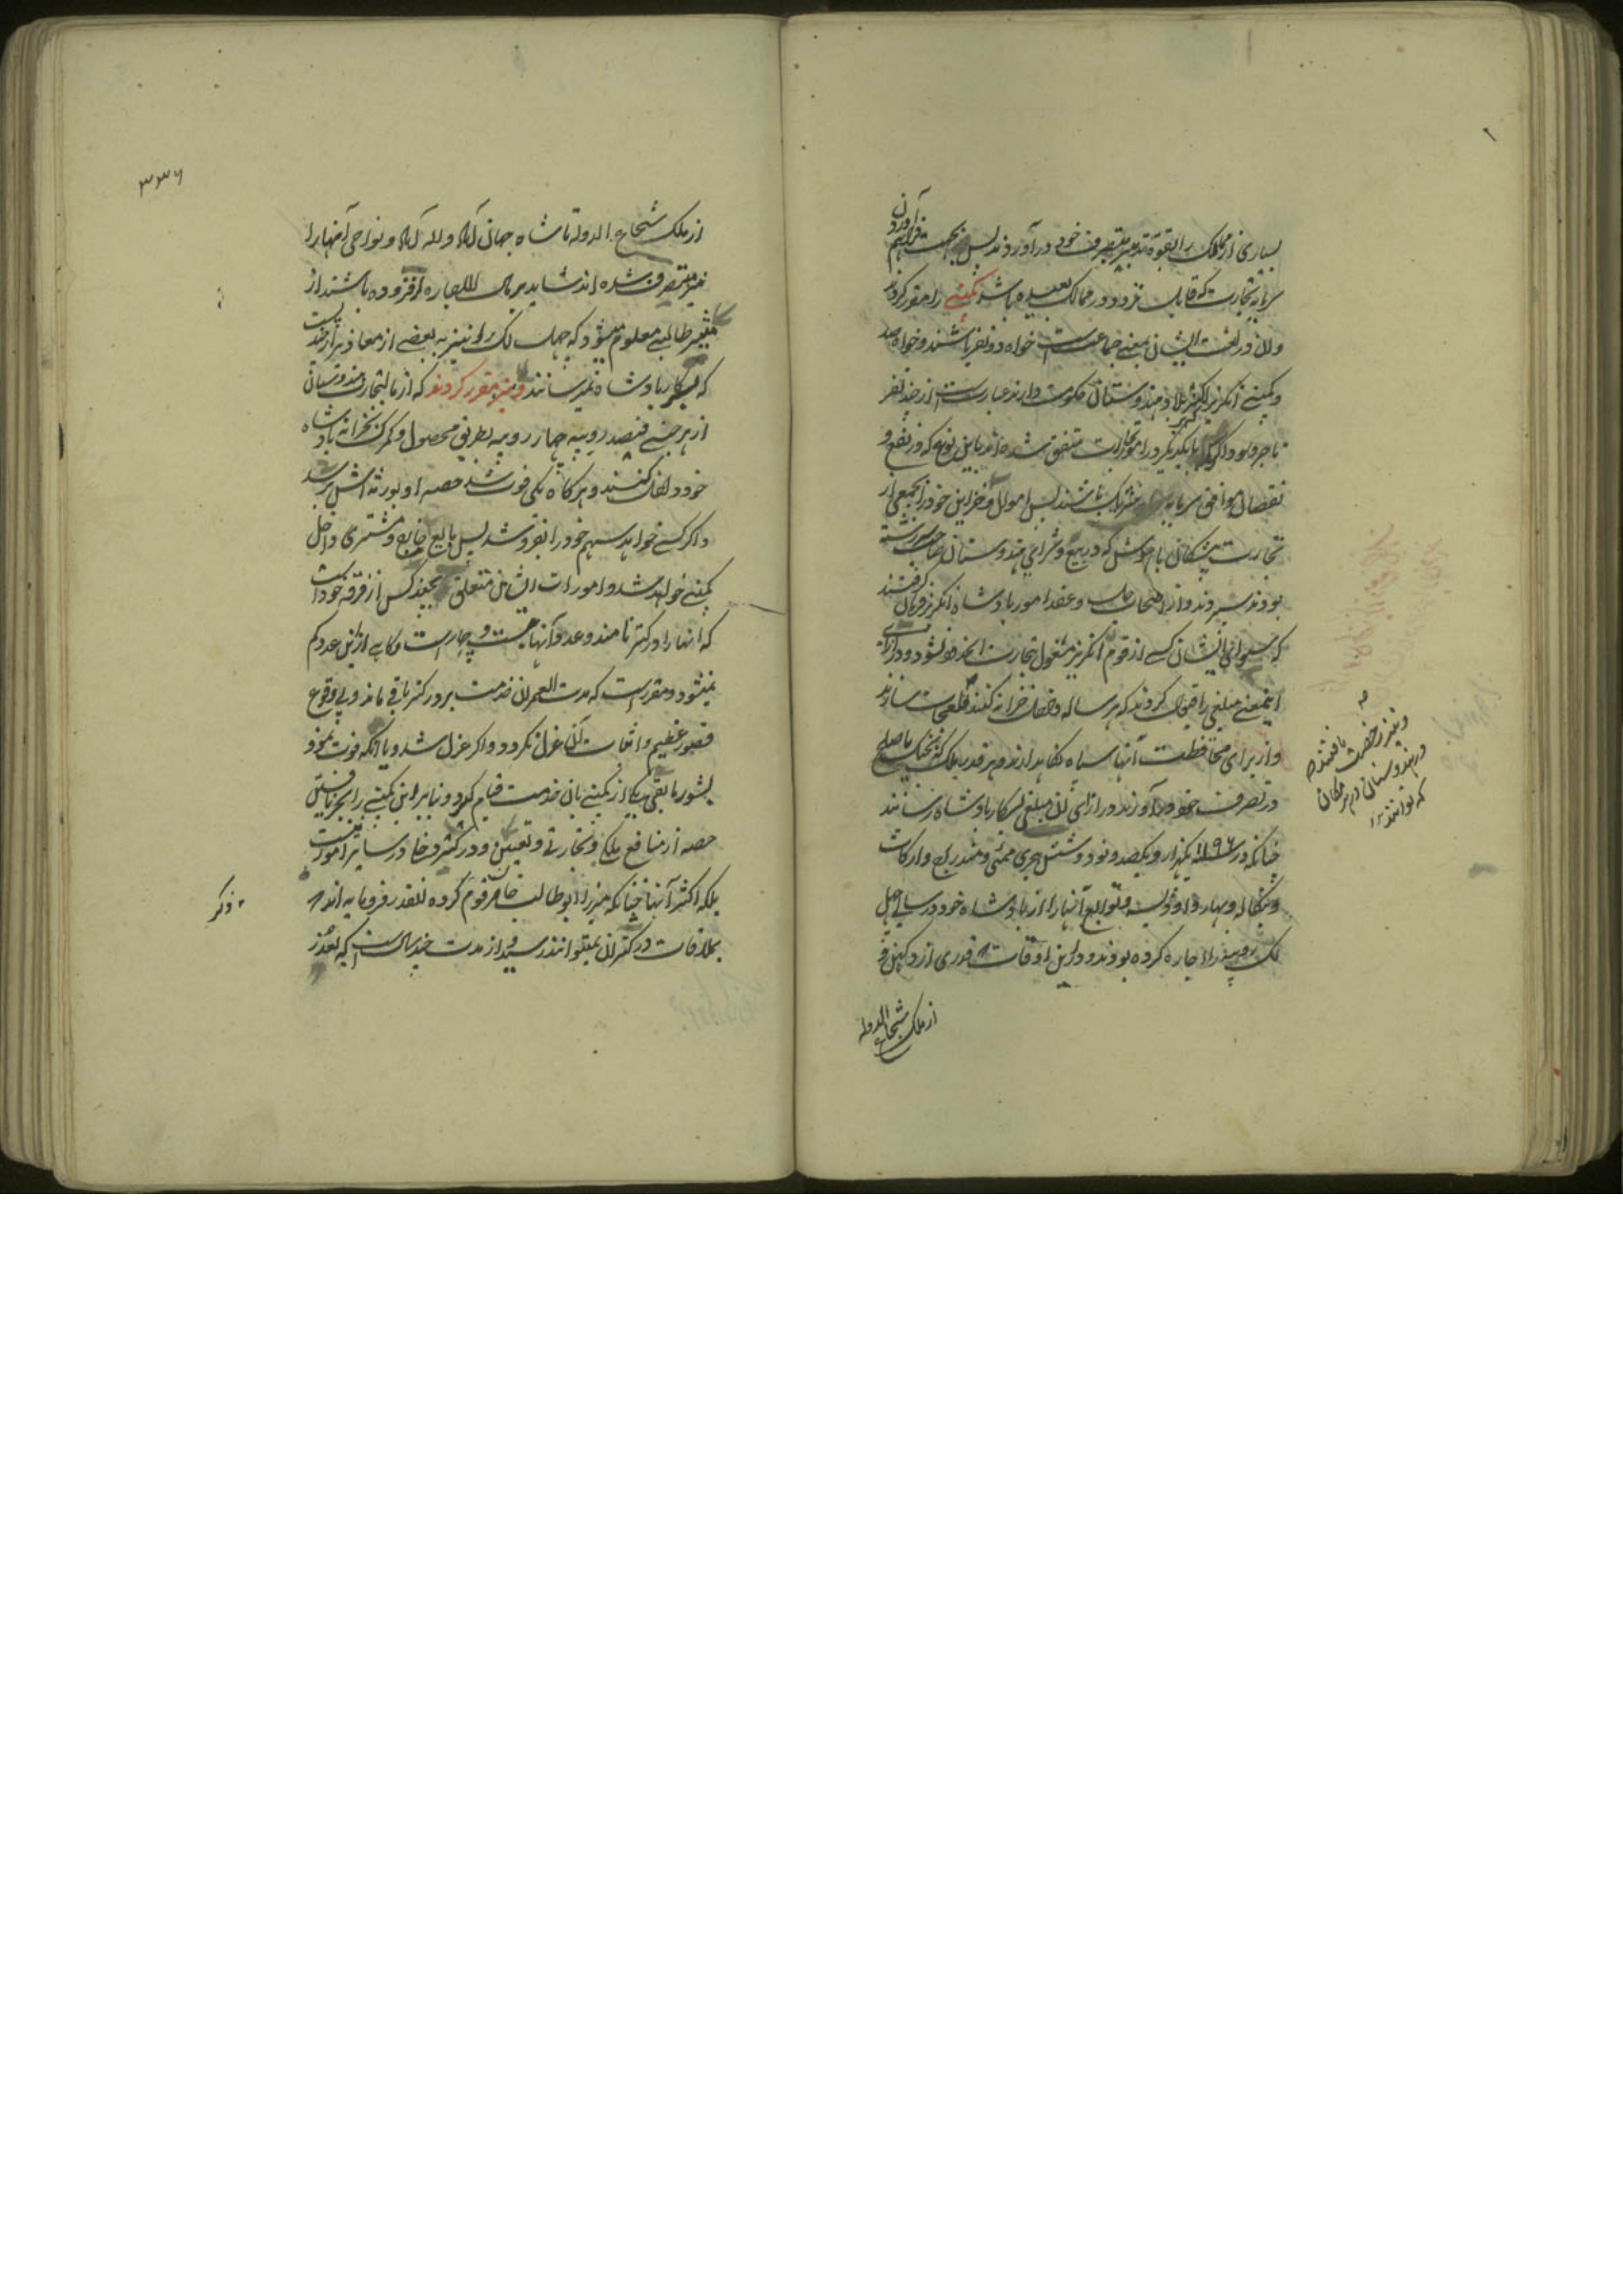 بسیاری از ممالک را بقوة تدبیر بتصرف خود در آوردند پس بجهت فراهم آوردن
سرمایه تجارت که قابل تردد در ممالک بعیده باشد کمپنی را مقرر کردند
و آن در لغت ایشان بمعنی جماعت است خواه دو نفر باشند و خواه صد
و کمپنی انگریز که در اکثر بلاد هندوستان حکومت دارند عبارت است از چند نفر
تاجر که با یکدیگر در امر تجارت متفق شده اند باین نوع که در نفع و
نقصان موافق سرمایه شریک باشند پس اموال و خزاین خود را بجمعی از
تجارت پیشگان با هوش که در بیع و شرای هندوستان صاحب سررشته
بودند سپردند و از اصحاب حل و عقد امور پادشاه انگریز فرمان گرفتند
که سوای ایشان کسی از قوم انگریز مشغول تجارت آنحدود نشود و در ازای
اینمعنی مبلغی را قبول کردند که هر ساله داخل خزانه کنند و قلعجات سازند
و از برای محافظت آنها سپاه نگاهدارند و هر قدر ملک که بجنگ یا صلح
در تصرف خود در آورند در ازای آن مبلغی بسرکار پادشاه رسانند
چنانکه در سنه ۱۱۹۶ یکهزار و یکصد و نود و شش هجری ممبئی و مندراج و ارکات
و بنگاله و بهار و اودیسه و توابع آنها را از پادشاه خود در سالی چهل
لک روپیه اجاره کرده بودند و در این اوقات که قدری از دکهن و
از ملک شجاع الدوله
و نیز رخصت یافتند که
در هندوستان در هر مکان
که توانند
۳۳۶
از ملک شجاع الدوله تا شاه جهان آباد و اله آباد و نواحی آنها را
نیز متصرف شده اند شاید بر مال الاجاره افزوده باشند از
مسیر طالبی معلوم میشود که چهل لک را نیز به بعضی از معاذیر چند سال است
که بسرکار پادشاه نمیرسانند و نیز مقرر کردند که از مال تجارت هندوستان
از هر جنسی فیصد روپیه چهار روپیه بطریق محصول و گمرک بخزانه پادشاه
خود داخل کنند و هرگاه یکی فوت شد حصه او بورثه اش برسد
و اگر کسی خواهد سهم خود را بفروشد پس بایع خارج و مشتری داخل
کمپنی خواهد شد و امورات ایشان متعلق بچند کس از فرقه خود است
که آنها را درکتر نامند و عدد آنها بیست و چهار است و گاهی از این عدد کم
نمیشود و مقرر است که مدت العمر آن خدمت بر درکتر باقی ماند و بی وقوع
قصور عظیم و اثبات آن عزل نگردد و اگر عزل شد و یا آنکه فوت نمود
بشور مابقی یکی از کمپنی بآن خدمت قیام گیرد و بنا بر این کمپنی را بجز یافتن
حصه از منافع ملکی و تجارتی و تعیین درکتر دخلی در سایر امورات نیست
بلکه اکثر آنها چنانکه میرزا ابوطالب خان مرقوم کرده آنقدر فرومایه اند که
بملاقات درکتران نمیتوانند رسید و از مدت چند سال است که بعذر